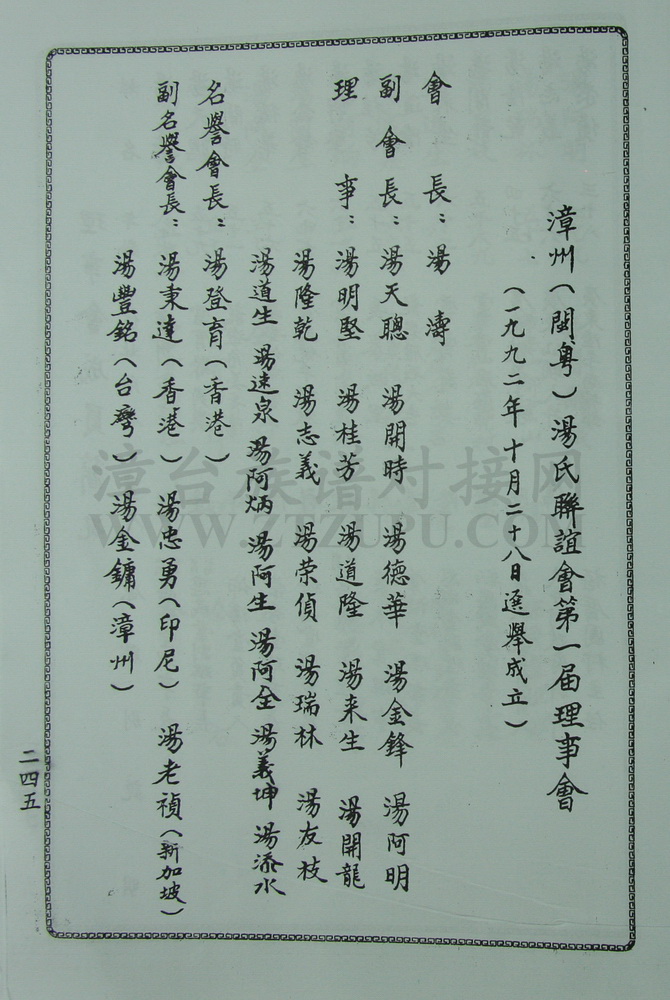 漳州（閩粤）湯氏聯誼會第一届理事會
（一九九二年十月二十八日選舉成立）
會長：湯濤
副會長：湯天聰 湯開時 湯德華 湯金鋒 湯阿明
理事：湯明堅 湯桂芳 湯道隆 湯来生 湯開龍
湯隆乾 湯志義 湯荣偵 湯瑞林 湯友枝
湯道生 湯速泉 湯阿炳 湯阿生 湯阿全 湯義坤 湯添水
名譽會長：湯登育（香港）
副名譽會長：湯秉達（香港） 湯忠勇（印尼） 湯老禎（新加坡）
湯豐銘（台灣） 湯金鏞（漳州）
二四五
漳台族谱对接网
WWW.ZTZUPU.COM